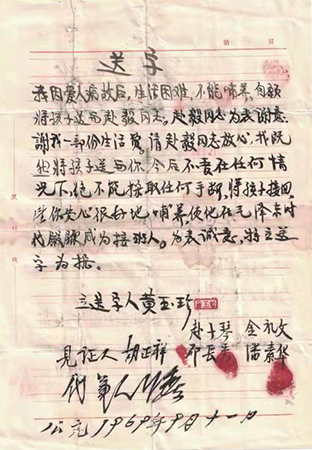 送字
我因爱人病故后,生活困难,不能哺养,自愿
将孩子送与赵毅同志。赵毅同志为表谢意
谢我一部份生活费。请赵毅同志放心,我既
然将孩子送与你,今后不管在任何情
况下,绝不能採取任何手段,将孩子接回,
你安心很好地哺养使他在毛泽东时
代锻鍊成为接班人。为表诚意,特立送
字为据。
立送字人 黄玉珍
赵玉琴 金礼文
见证人 胡正祥 邓长秀 潘素华
代笔人
公元1969年9月十一日